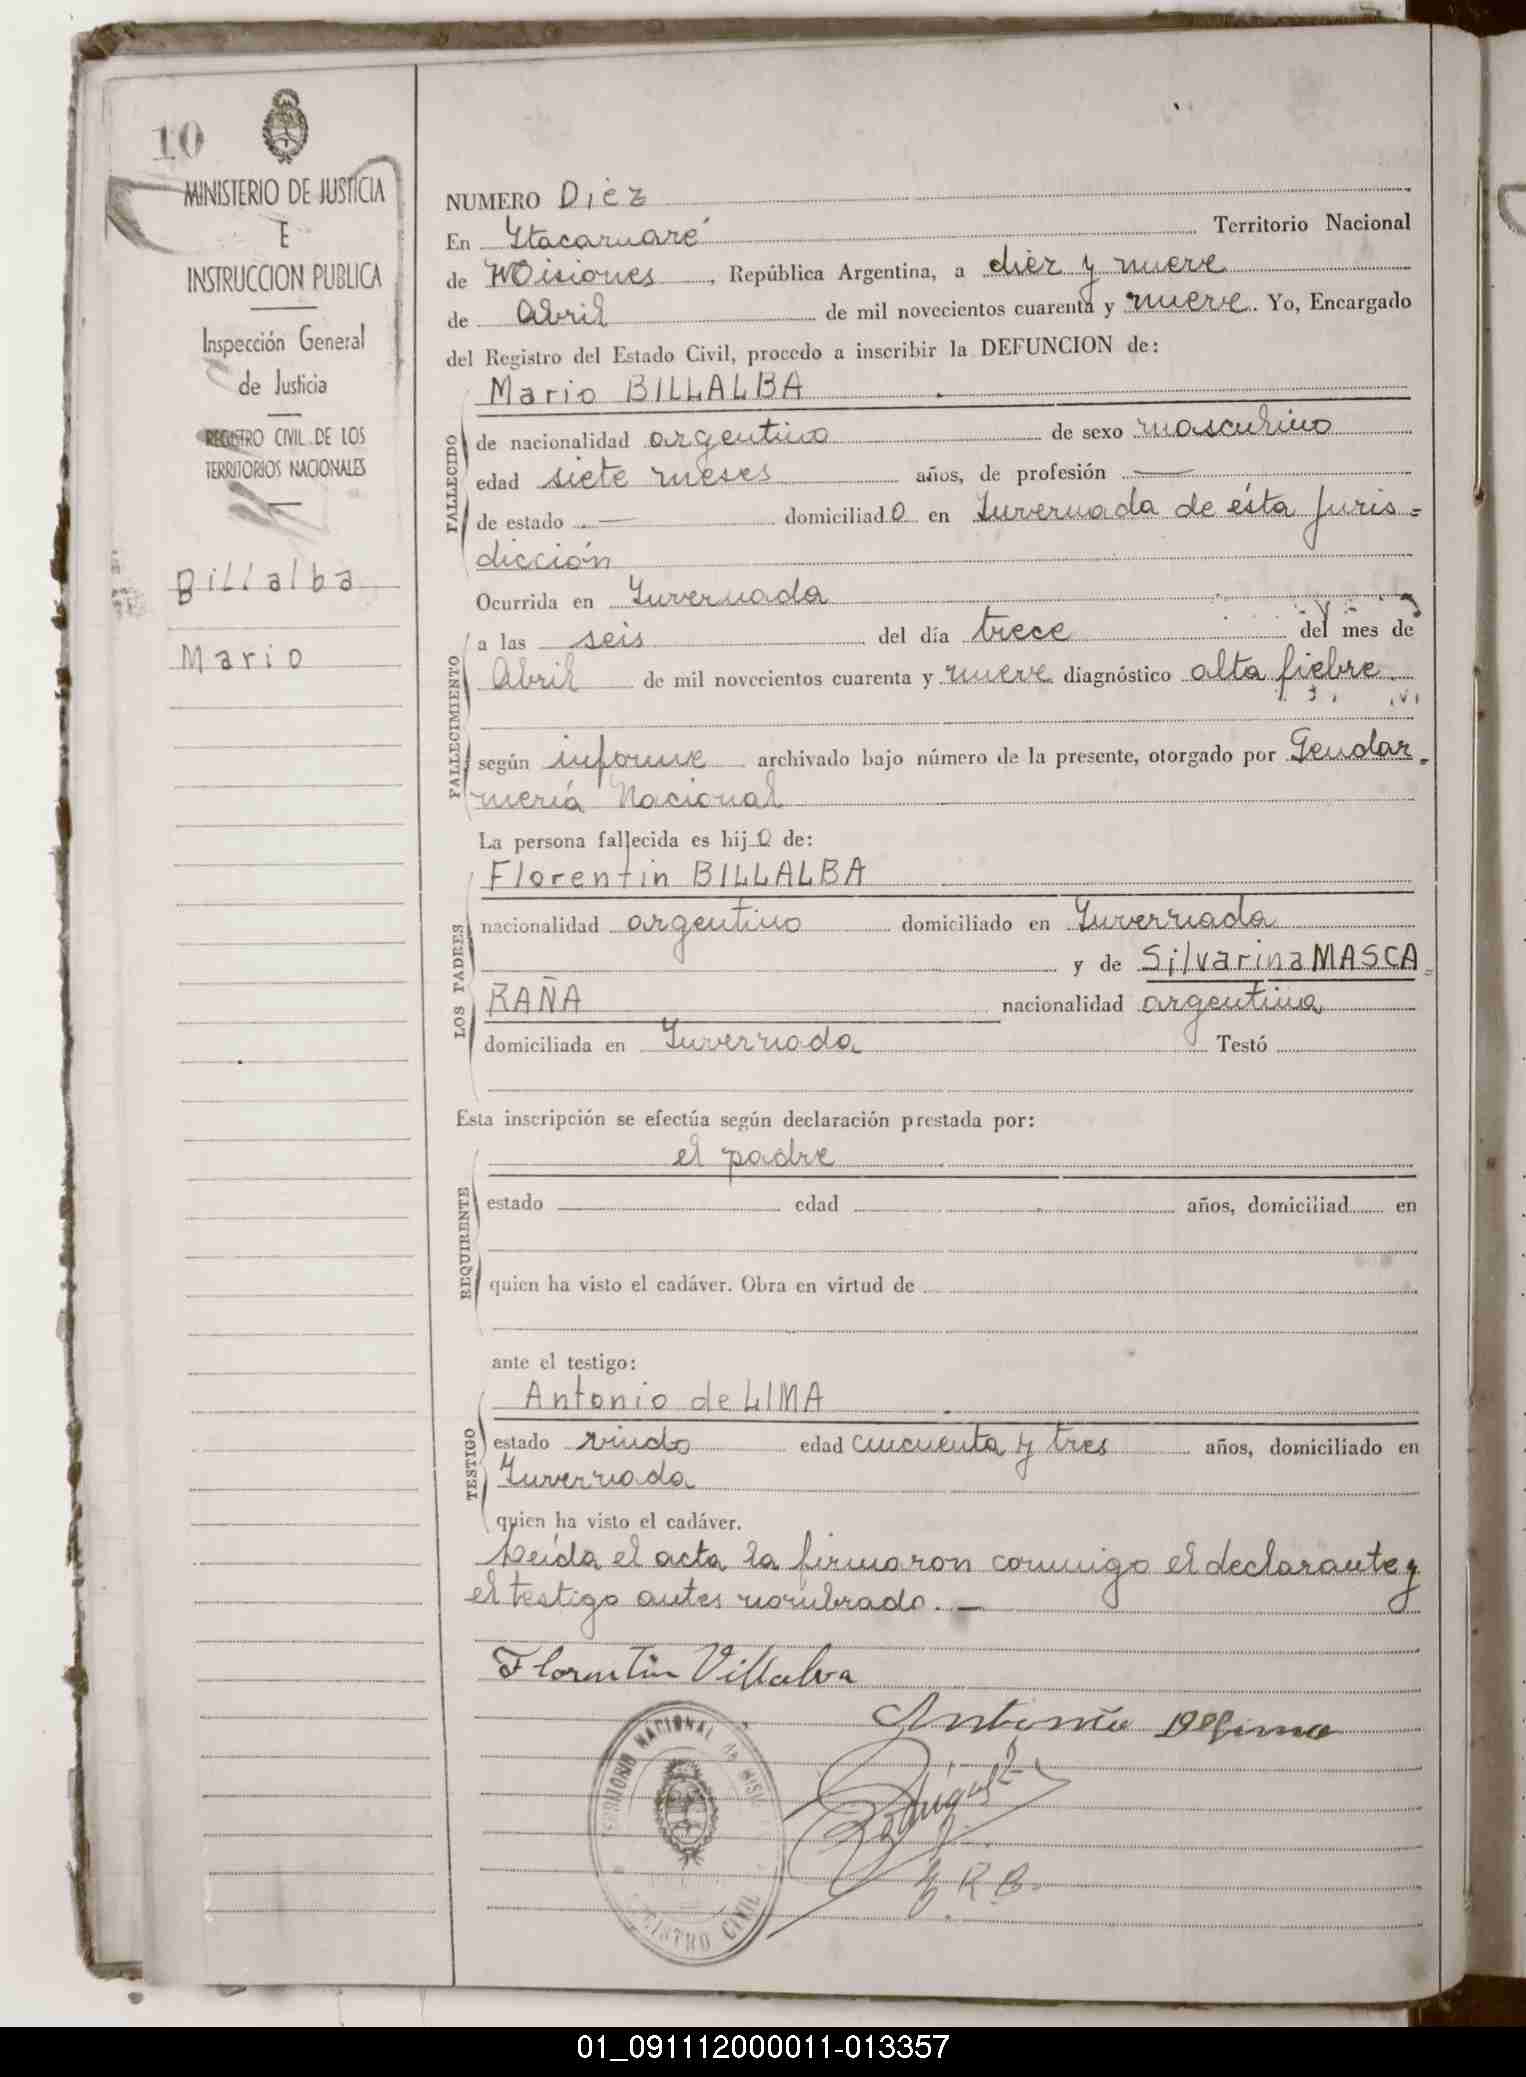 10
MINISTERIO DE JUSTICIA
E
INSTRUCCION PUBLICA
Inspección General
de Justicia
REGISTRO CIVIL DE LOS
TERRITORIOS NACIONALES
Billalba
Mario
NUMERO Diez
En Itacaruaré Territorio Nacional
de Misiones, República Argentina, a diez y nueve
de Abril de mil novecientos cuarenta y nueve. Yo, Encargado
del Registro del Estado Civil, procedo a inscribir la DEFUNCION de:
Mario BILLALBA
FALLECIDO
de nacionalidad argentino de sexo masculino
edad siete meses años, de profesión —
de estado — domiciliado en Invernada de ésta Juris=
dicción
FALLECIMIENTO
Ocurrida en Invernada
a las seis del día trece del mes de
Abril de mil novecientos cuarenta y nueve diagnóstico alta fiebre.
según informe archivado bajo número de la presente, otorgado por Gendar=
mería Nacional
La persona fallecida es hijo de:
LOS PADRES
Florentin BILLALBA
nacionalidad argentino domiciliado en Invernada
y de Silvarina MASCA=
RAÑA nacionalidad argentina
domiciliada en Invernada Testó
Esta inscripción se efectúa según declaración prestada por:
REQUIRENTE
el padre
estado edad años, domiciliad en
quien ha visto el cadáver. Obra en virtud de
ante el testigo:
TESTIGO
Antonio de LIMA
estado viudo edad cincuenta y tres años, domiciliado en
Invernada
quien ha visto el cadáver.
Leída el acta la firmaron conmigo el declarante y
el testigo antes nombrado. —
Florentin Villalva
Antonio
TERRITORIO NACIONAL de MISI
REGISTRO CIVIL
01_091112000011-013357